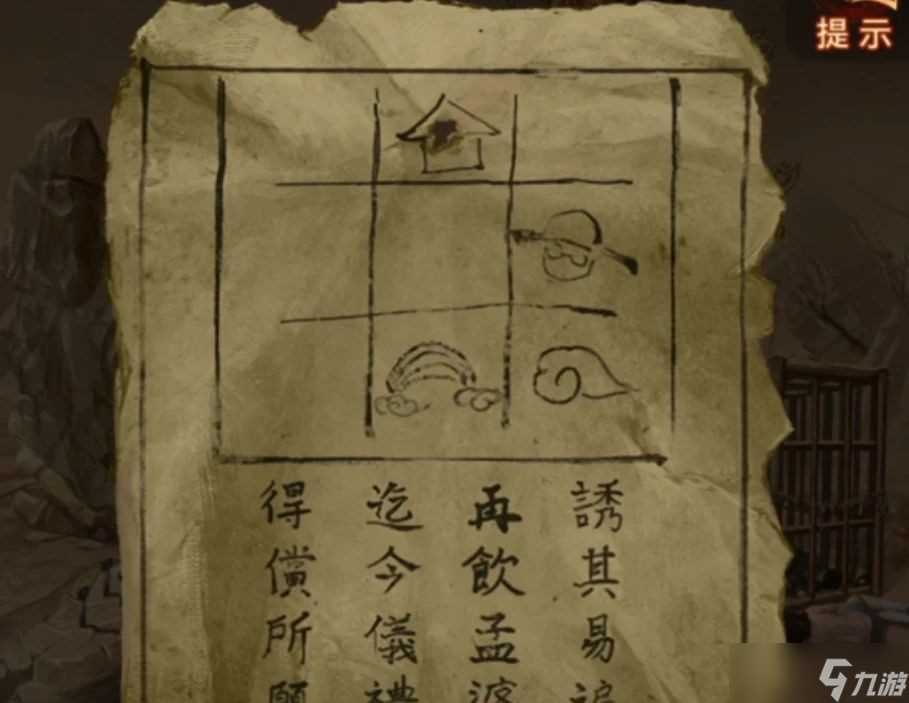 提示
誘其易
再飲孟
迄今儀
得償所
九游